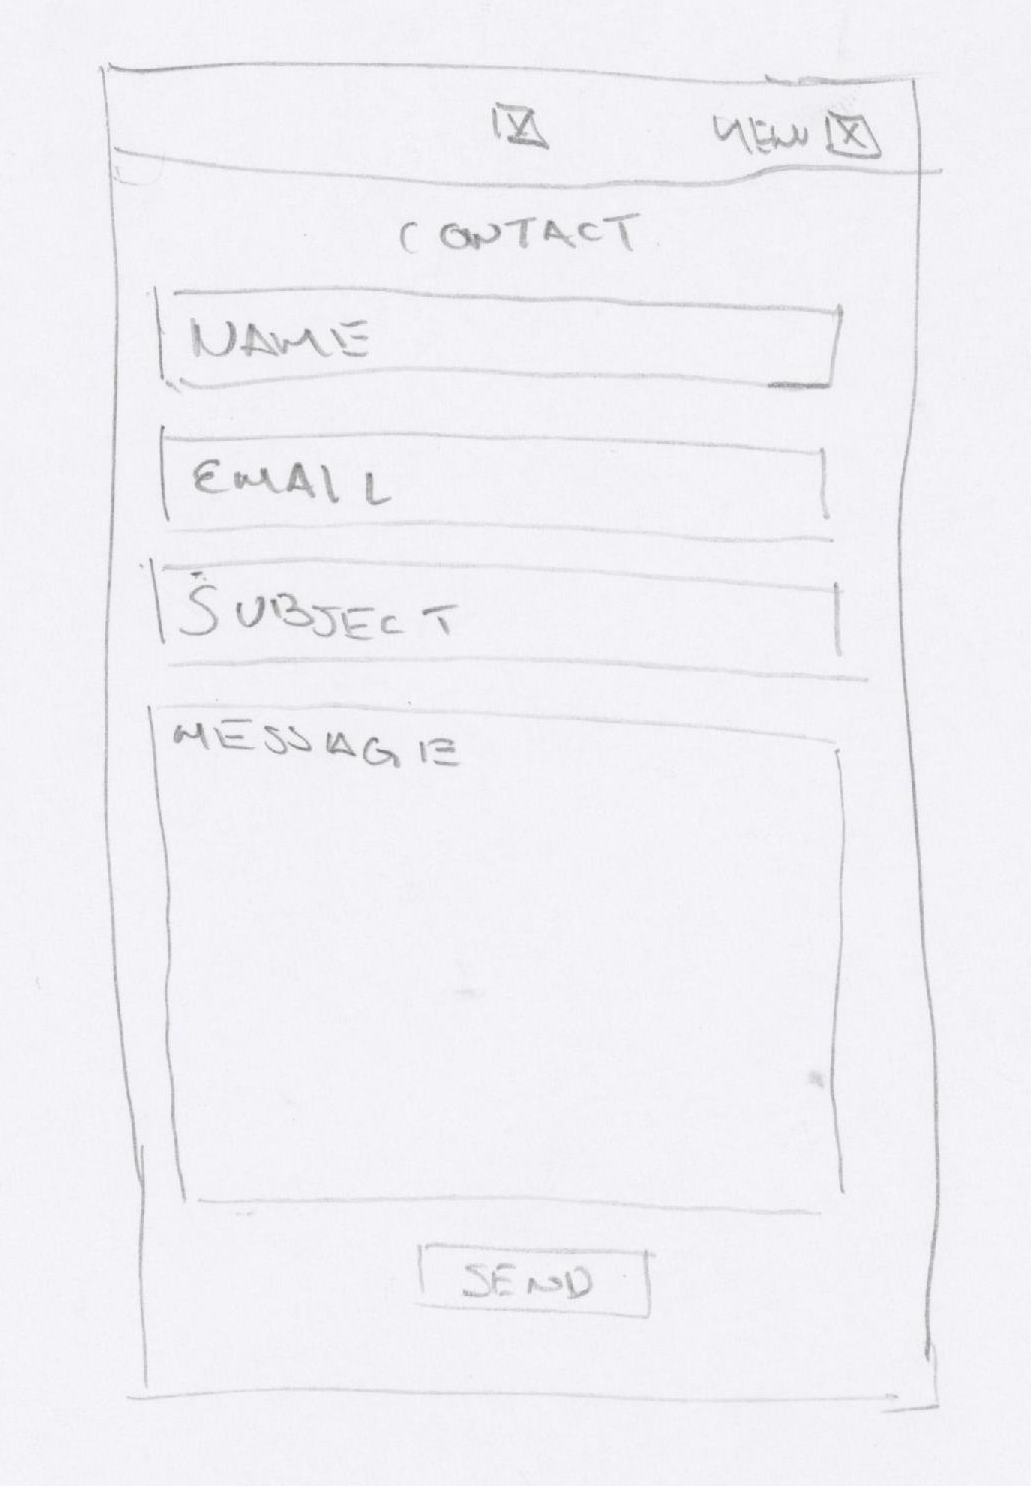 MENU
CONTACT
NAME
EMAIL
SUBJECT
MESSAGE
SEND